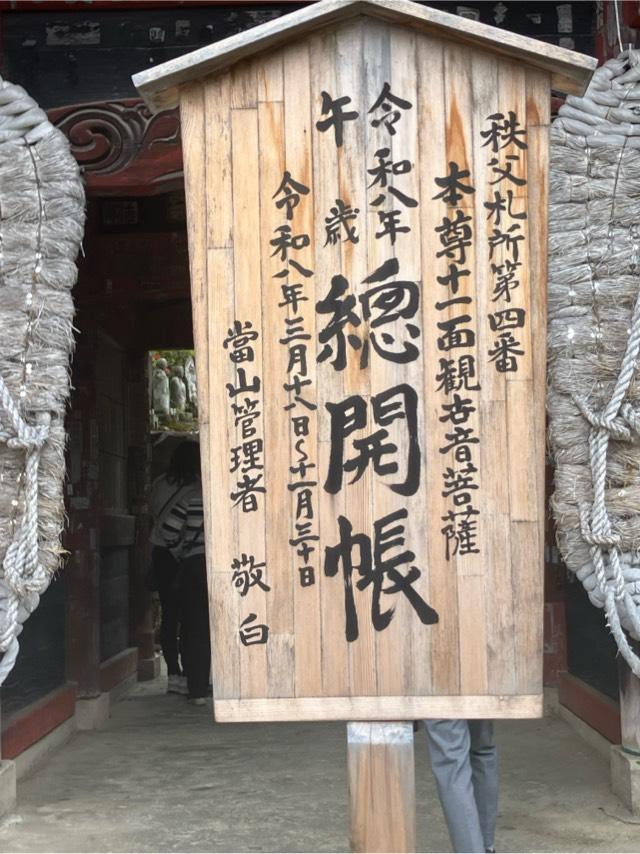 秩父札所第四番
本尊十一面観世音菩薩
令和八年
午歳
總開帳
令和八年三月十八日〜十一月三十日
當山管理者 敬白